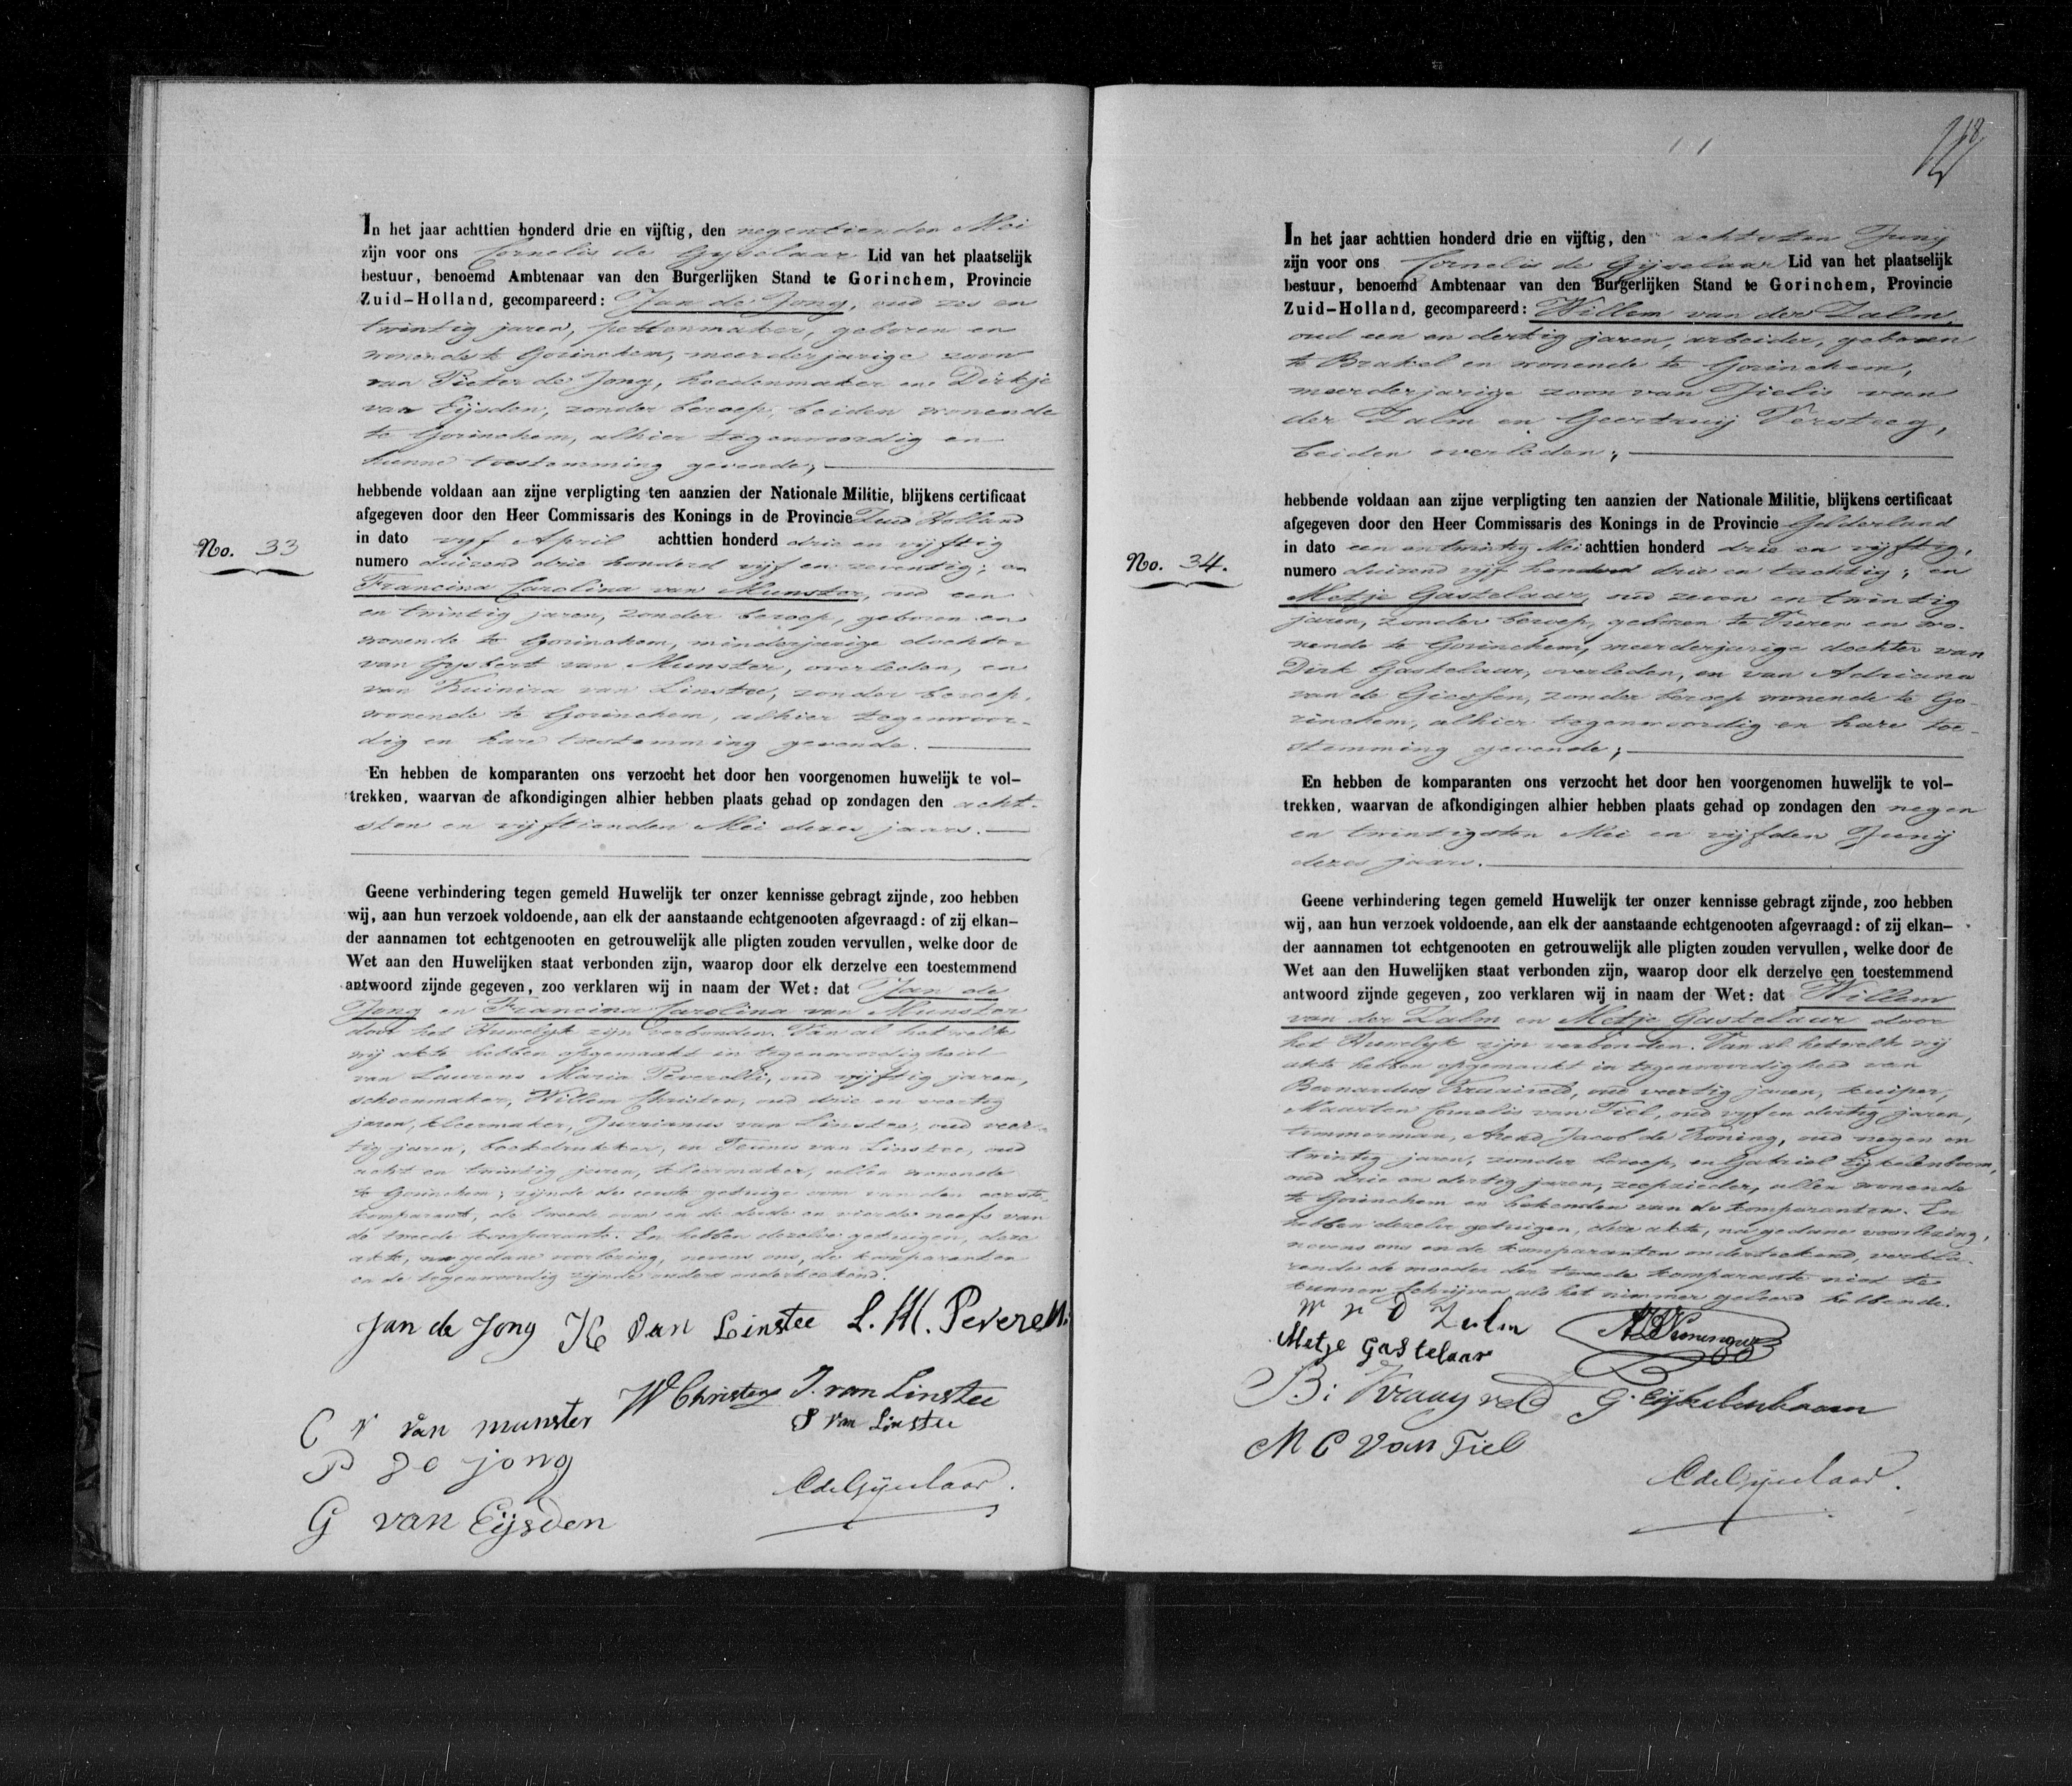 In het jaar achttien honderd drie en vijftig, den negentienden Mei
zijn voor ons Cornelis de Gijselaar Lid van het plaatselijk
bestuur, benoemd Ambtenaar van den Burgerlijken Stand te Gorinchem, Provincie
Zuid-Holland, gecompareerd: Jan de Jong, oud zes en
twintig jaren, pettenmaker, geboren en
wonende te Gorinchem, meerderjarige zoon
van Pieter de Jong, hoedenmaker en Dirkje
van Eijsden, zonder beroep, beiden wonende
te Gorinchem, alhier tegenwoordig en
hunne toestemming gevende;
hebbende voldaan aan zijne verpligting ten aanzien der Nationale Militie, blijkens certificaat
afgegeven door den Heer Commissaris des Konings in de Provincie Zuid Holland
in dato vijf April achttien honderd drie en vijftig
No. 33
numero duizend drie honderd vijf en zeventig; en
Francina Carolina van Munster, oud een
en twintig jaren, zonder beroep, geboren en
wonende te Gorinchem, minderjarige dochter
van Gijsbert van Munster, overleden, en
van Kuinira van Linstee, zonder beroep,
wonende te Gorinchem, alhier tegenwoor-
dig en hare toestemming gevende.
En hebben de komparanten ons verzocht het door hen voorgenomen huwelijk te vol-
trekken, waarvan de afkondigingen alhier hebben plaats gehad op zondagen den acht-
sten en vijftienden Mei dezes jaars.
Geene verhindering tegen gemeld Huwelijk ter onzer kennisse gebragt zijnde, zoo hebben
wij, aan hun verzoek voldoende, aan elk der aanstaande echtgenooten afgevraagd: of zij elkan-
der aannamen tot echtgenooten en getrouwelijk alle pligten zouden vervullen, welke door de
Wet aan den Huwelijken staat verbonden zijn, waarop door elk derzelve een toestemmend
antwoord zijnde gegeven, zoo verklaren wij in naam der Wet: dat Jan de
Jong en Francina Carolina van Munster
door het Huwelijk zijn verbonden. Van al hetwelk
wij akte hebben opgemaakt in tegenwoordigheid
van Laurens Maria Peverelli, oud vijftig jaren,
schoenmaker, Willem Christen, oud drie en veertig
jaren, kleermaker, Jurrianus van Linstee, oud veer-
tig jaren, boekdrukker, en Teunis van Linstee, oud
acht en twintig jaren, kleermaker, allen wonende
te Gorinchem; zijnde de eerste getuige oom van den eerste
komparant, de tweede oom en de derde en vierde neefs van
de tweede komparante. En hebben dezelve getuigen, deze
akte, na gedane voorlezing, nevens ons, de komparanten
en de tegenwoordig zijnde ouders onderteekend.
Jan de Jong K van Linstee L. M. Peverelli
W Christen J. van Linstee
C F van munster
van Linstee
P de jong
C de Gijselaar.
G van Eijsden
18
In het jaar achttien honderd drie en vijftig, den achtsten Junij
zijn voor ons Cornelis de Gijselaar Lid van het plaatselijk
bestuur, benoemd Ambtenaar van den Burgerlijken Stand te Gorinchem, Provincie
Zuid-Holland, gecompareerd: Willem van der Zalm,
oud een en dertig jaren, arbeider, geboren
te Brakel en wonende te Gorinchem,
meerderjarige zoon van Jielis van
der Zalm en Geertruij Versteeg,
beiden overleden;
hebbende voldaan aan zijne verpligting ten aanzien der Nationale Militie, blijkens certificaat
afgegeven door den Heer Commissaris des Konings in de Provincie Gelderland
in dato een en twintig Mei achttien honderd drie en vijftig,
No. 34.
numero duizend vijf honderd drie en tachtig; en
Metje Gastelaar, oud zeven en twintig
jaren, zonder beroep, geboren te Vuren en wo-
nende te Gorinchem, meerderjarige dochter van
Dirk Gastelaar, overleden, en van Adriana
van de Giessen, zonder beroep wonende te Go-
rinchem, alhier tegenwoordig en hare toe-
stemming gevende;
En hebben de komparanten ons verzocht het door hen voorgenomen huwelijk te vol-
trekken, waarvan de afkondigingen alhier hebben plaats gehad op zondagen den negen
en twintigsten Mei en vijfden Junij
dezes jaars.
Geene verhindering tegen gemeld Huwelijk ter onzer kennisse gebragt zijnde, zoo hebben
wij, aan hun verzoek voldoende, aan elk der aanstaande echtgenooten afgevraagd: of zij elkan-
der aannamen tot echtgenooten en getrouwelijk alle pligten zouden vervullen, welke door de
Wet aan den Huwelijken staat verbonden zijn, waarop door elk derzelve een toestemmend
antwoord zijnde gegeven, zoo verklaren wij in naam der Wet: dat Willem
van der Zalm en Metje Gastelaar door
het Huwelijk zijn verbonden. Van al hetwelk wij
akte hebben opgemaakt in tegenwoordigheid van
Bernardus Kraaiveld, oud veertig jaren, kuiper,
Maarten Cornelis van Tiel, oud vijf en dertig jaren,
timmerman, Arend Jacob de Koning, oud negen en
twintig jaren, zonder beroep, en Gabriel Eijkelenboom,
oud drie en dertig jaren, zeepzieder, allen wonende
te Gorinchem en bekenden van de komparanten. En
hebben dezelve getuigen, deze akte, na gedane voorlezing,
nevens ons en de komparanten onderteekend, verkla-
rende de moeder der tweede komparante niet te
kunnen schrijven als het nimmer geleerd hebbende.
W v d Zalm
Metje Gastelaar
B: Kraayveld G. Eijkelenboom
M C Van Tiel
C de Gijselaar.